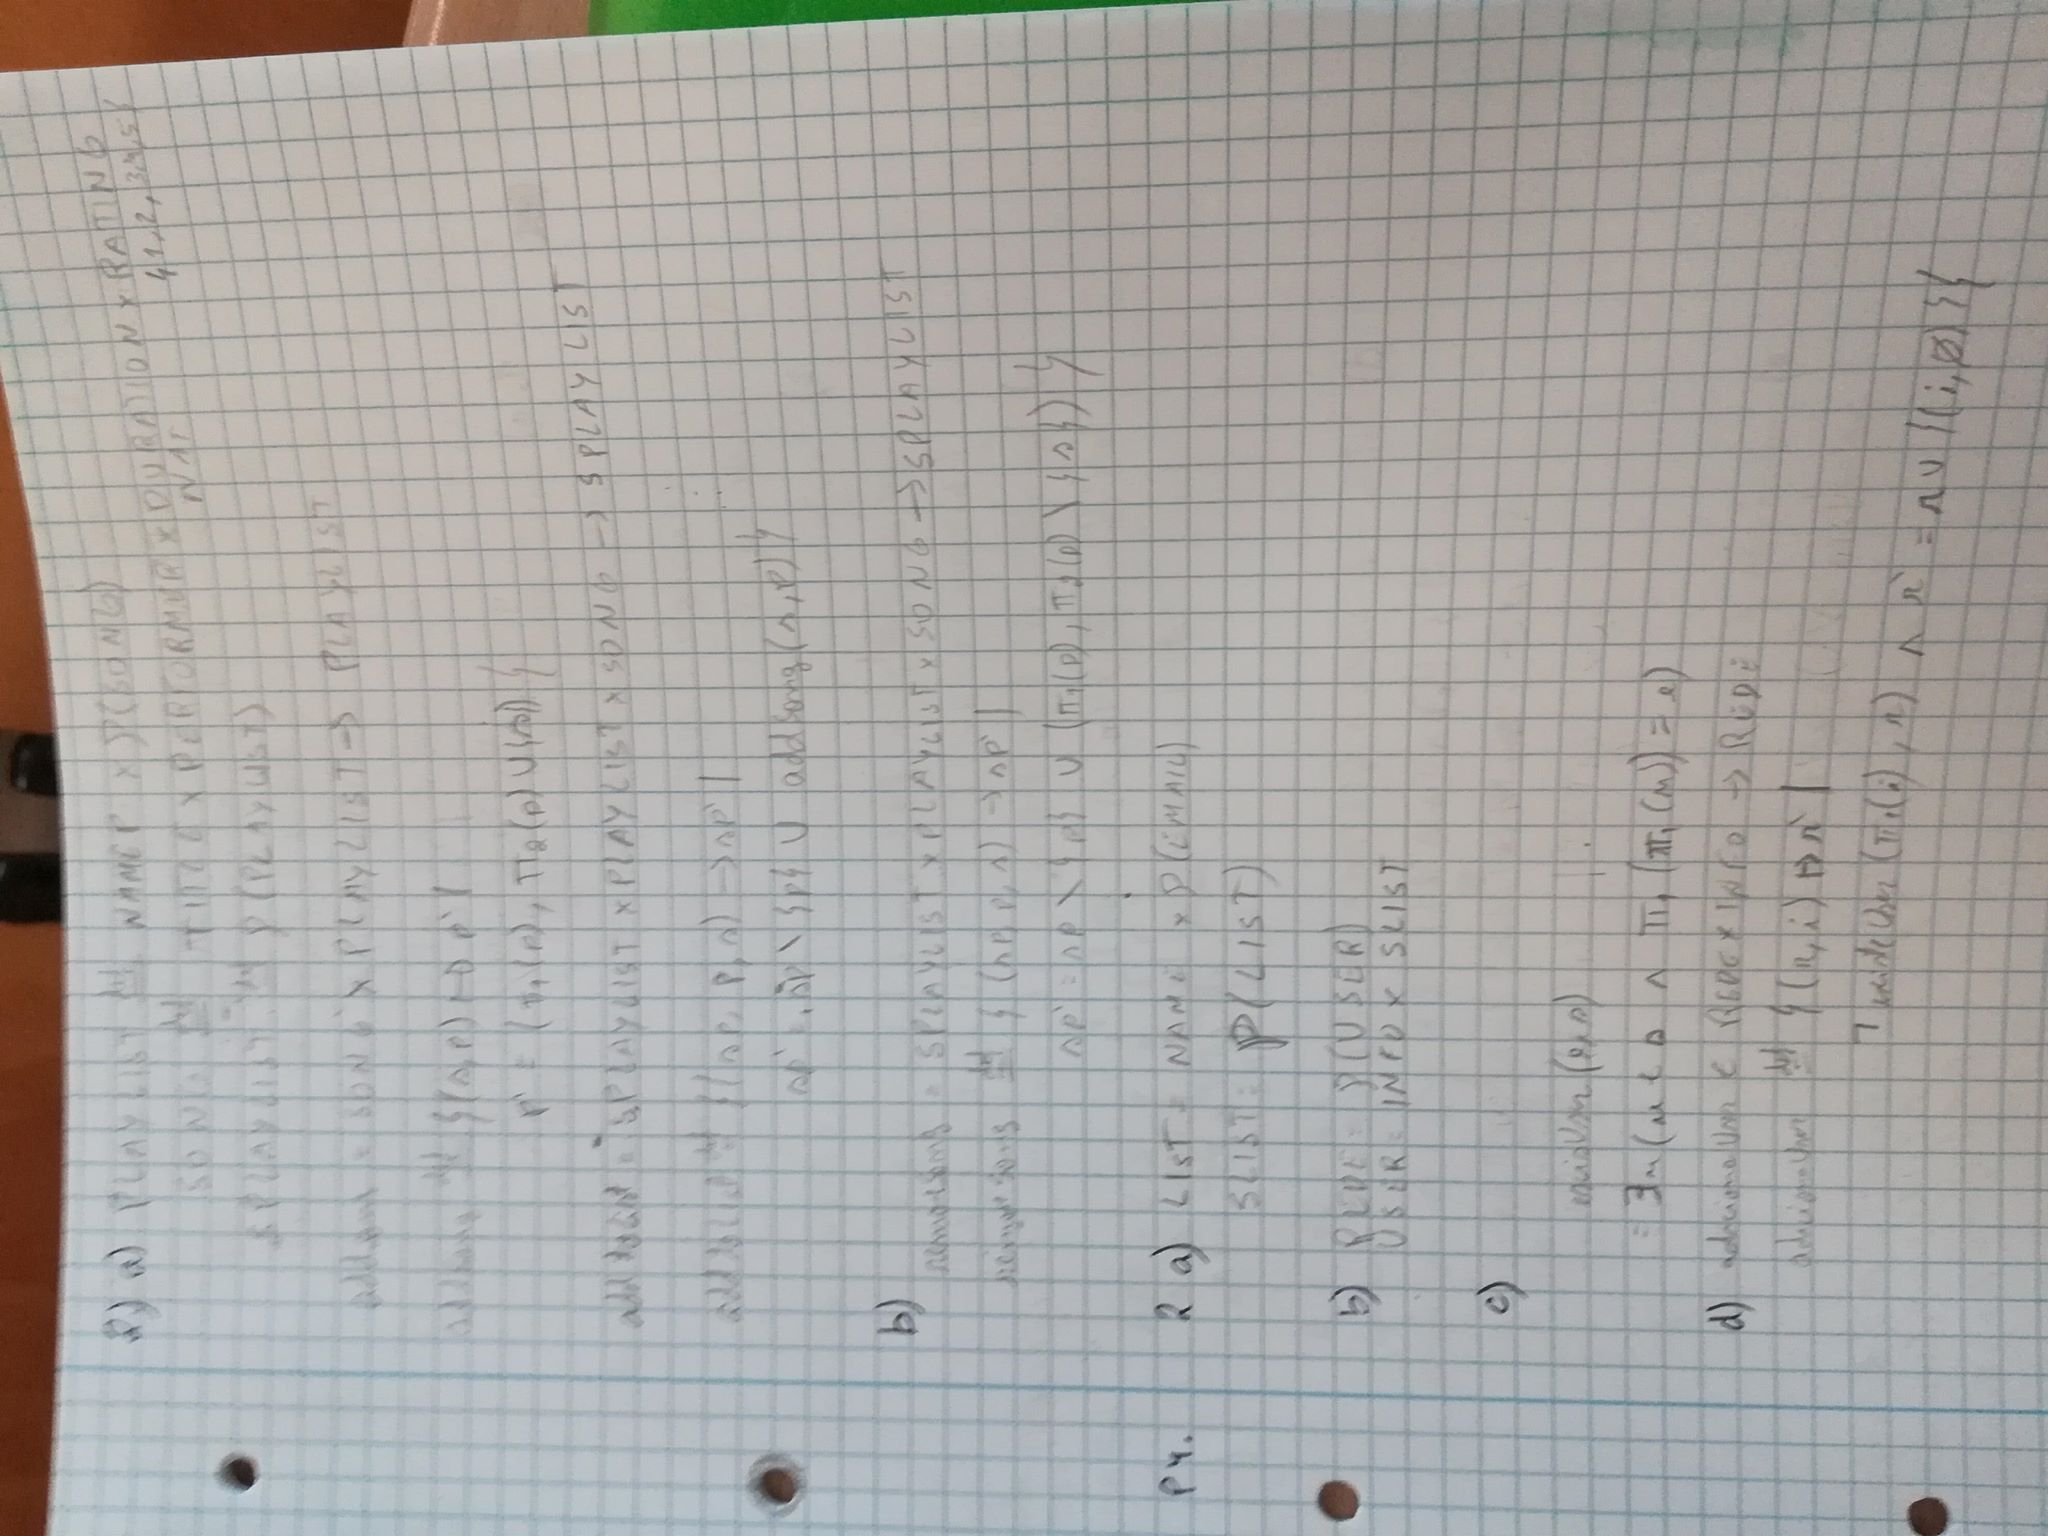 2) a) PLAYLIST def NAMEP x P(SONG)
SONG def TITLE x PERFORMER x DURATION x RATING
NAT {1,2,3,4,5}
SPLAYLIST def P(PLAYLIST)
addSong = SONG x PLAYLIST -> PLAYLIST
addSong def {(s,p) ↦ p' |
p' = (π1(p), π2(p) ∪ {s}) }
= SPLAYLIST x PLAYLIST x SONG -> SPLAYLIST
def {(sp, p, s) -> sp' |
sp' = sp \ {p} ∪ addSong(s,p) }
b)
removeSong = SPLAYLIST x PLAYLIST x SONG -> SPLAYLIST
removeSong def {(sp, p, s) -> sp' |
sp' = sp \ {p} ∪ (π1(p), π2(p) \ {s}) }
P4. 2 a) LIST = NAME x P(EMAIL)
SLIST = P(LIST)
b) REDE = P(USER)
USER = INFO x SLIST
c)
= ∃u (u ∈ s ∧ π1(π1(u)) = e)
d) adicionaUser ∈ REDE x INFO -> REDE
adicionaUser def {(r,i) ↦ r' |
¬ existeUser (π1(i), r) ∧ r' = r ∪ {(i,∅)}}